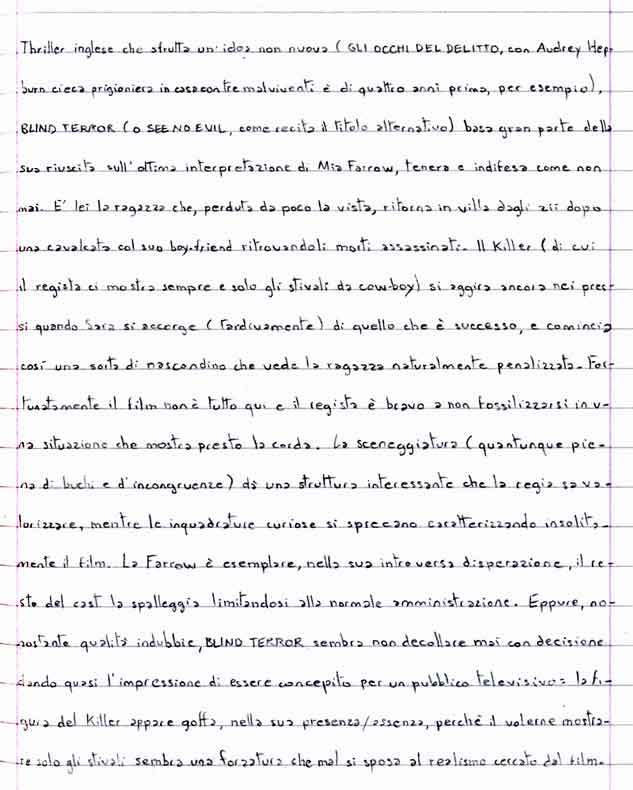 Thriller inglese che sfrutta un'idea non nuova (GLI OCCHI DEL DELITTO, con Audrey Hep-
burn cieca prigioniera in casa con tre malviventi è di quattro anni prima, per esempio),
BLIND TERROR (o SEE NO EVIL, come recita il titolo alternativo) basa gran parte della
sua riuscita sull'ottima interpretazione di Mia Farrow, tenera e indifesa come non
mai. E' lei la ragazza che, perduta da poco la vista, ritorna in villa dagli zii dopo
una cavalcata col suo boy-friend ritrovandoli morti assassinati. Il Killer (di cui
il regista ci mostra sempre e solo gli stivali da cow-boy) si aggira ancora nei pres-
si quando Sara si accorge (tardivamente) di quello che è successo, e comincia
così una sorta di nascondino che vede la ragazza naturalmente penalizzata. For-
tunatamente il film non è tutto qui e il regista è bravo a non fossilizzarsi in u-
na situazione che mostra presto la corda. La sceneggiatura (quantunque pie-
na di buchi e d'incongruenze) dà una struttura interessante che la regia sa va-
lorizzare, mentre le inquadrature curiose si sprecano caratterizzando insolita-
mente il film. La Farrow è esemplare, nella sua introversa disperazione, il re-
sto del cast la spalleggia limitandosi alla normale amministrazione. Eppure, no-
nostante qualità indubbie, BLIND TERROR sembra non decollare mai con decisione
dando quasi l'impressione di essere concepito per un pubblico televisivo: la fi-
gura del Killer appare goffa, nella sua presenza/assenza, perchè il volerne mostra-
re solo gli stivali sembra una forzatura che mal si sposa al realismo cercato dal film.